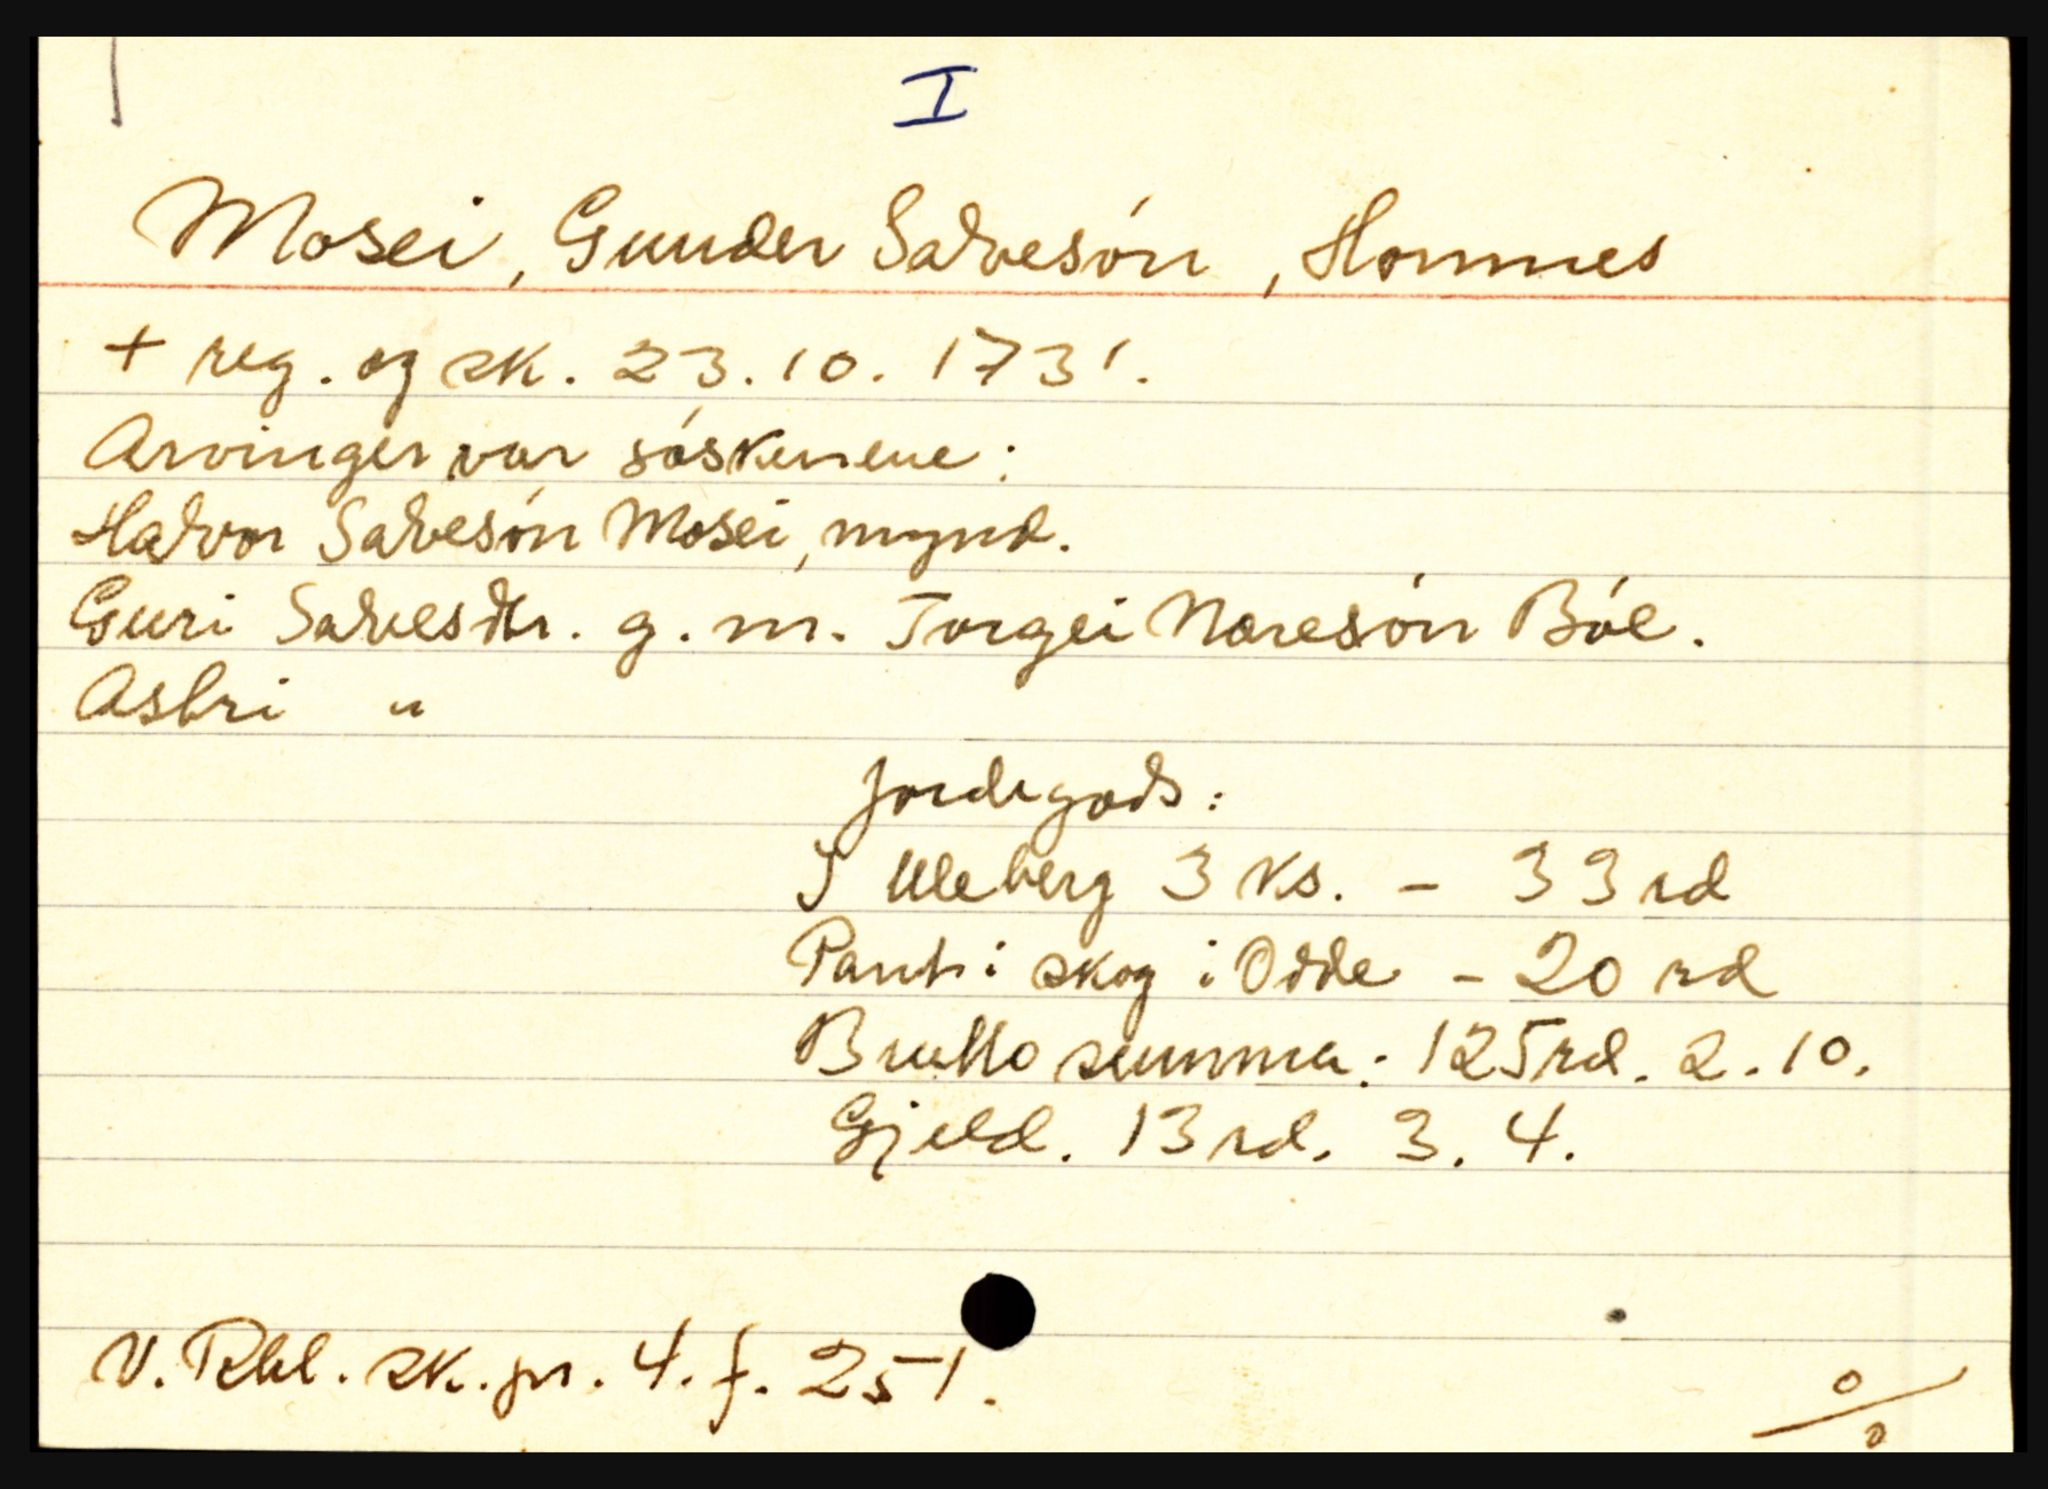 I
Mosei, Gunder Salvesón, Hommes
+ reg. og sk. 23.10.1731.
Arvinger var sóskenene:
Halvor Salvesón Mosei, mynd.
Guri Salvesdtr. g.m. Torgei Naresón Bóe.
Asbri "
Jordegods:
I Uleberg 3 ks. - 33 rd
Pant i skog i Odde - 20 rd
Brutto summa: 125 rd. 2.10.
Gjeld. 13 rd. 3. 4.
V. Rbl. sk. pr. 4. f. 251.
o/o